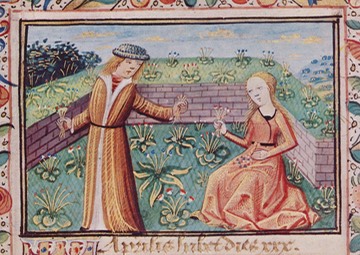 Aprilis habet dies xxx.